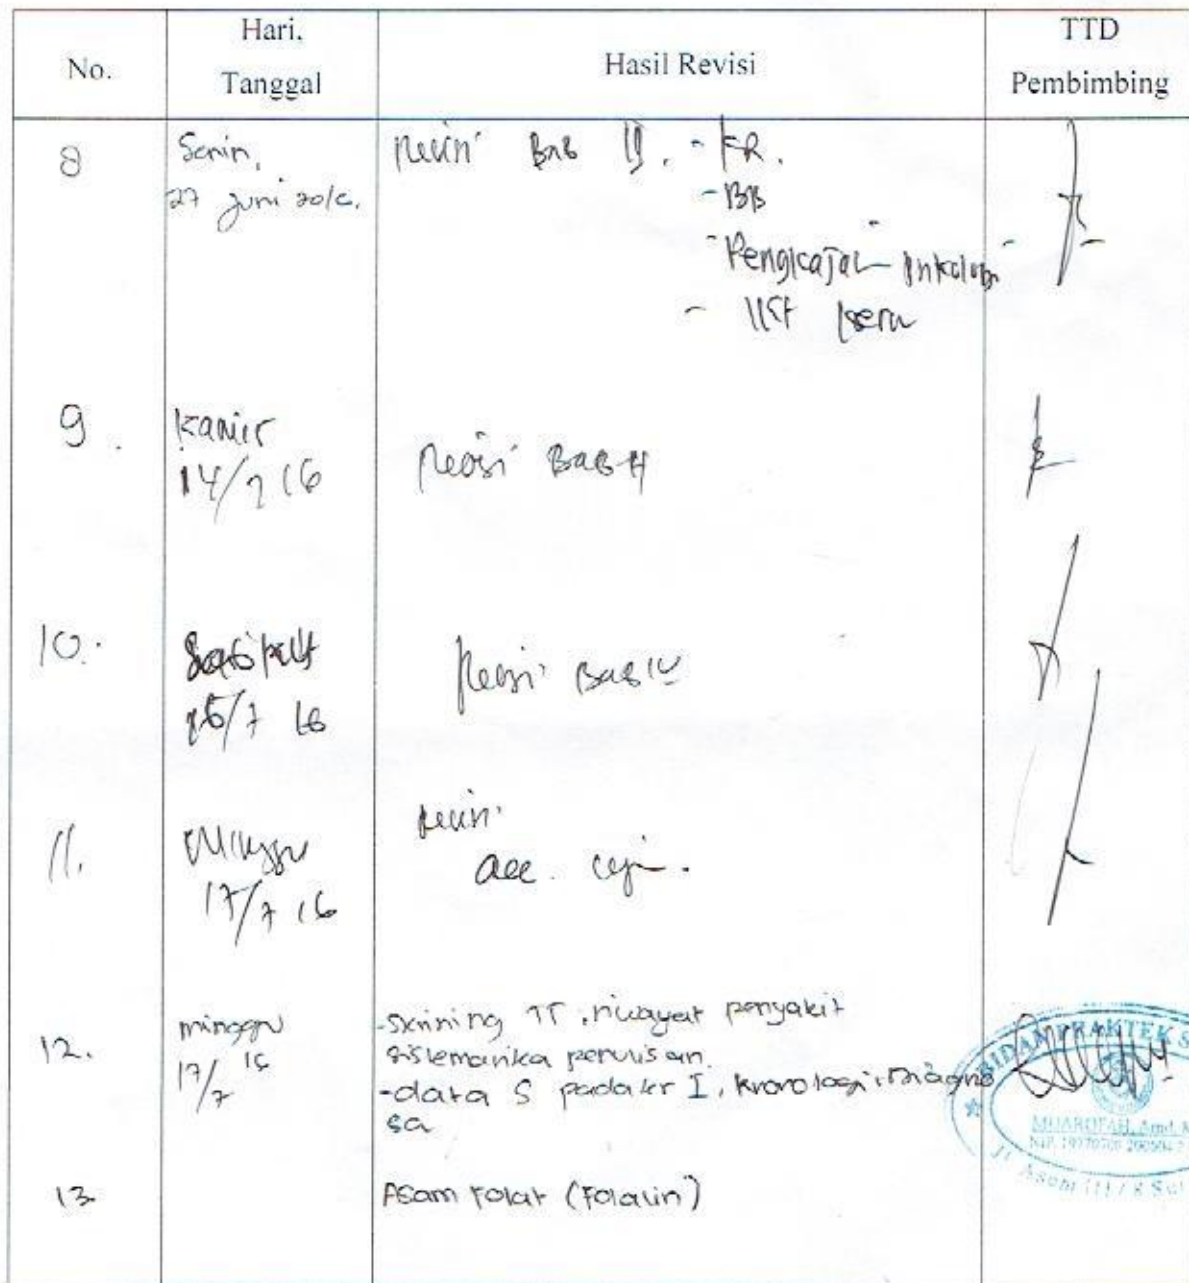 No.
Hari,
Tanggal
Hasil Revisi
TTD
Pembimbing
8
Senin,
27 Juni 2016.
Revisi BAB II. - KR.
- BB
- Pengkajian
-
9.
Kamis
14/7 16
Revisi BAB
10.
16/7 16
Revisi BAB IV
11.
Minggu
17/7 16
Revisi
acc. uji.
12.
minggu
17/7 16
-Skrining TT, riwayat penyakit
sistematika penulisan
-data S pada kr I, kronologi, Diagno
sa
BIDAN PRAKTEK S
MUAROFAH, Amd.K
NIP. 19770706
13.
Asam Folat (Folavin)